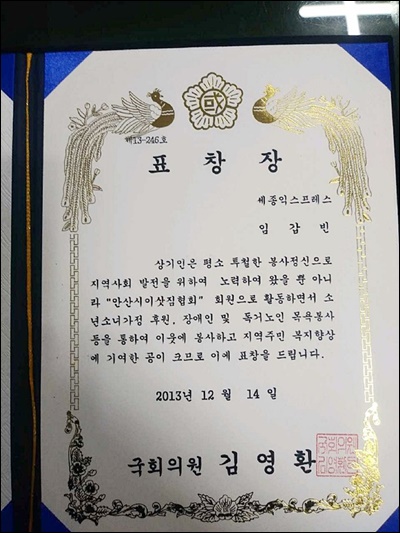 國
제13-246호
표 창 장
세종익스프레스
임 갑 빈
상기인은 평소 투철한 봉사정신으로
지역사회 발전을 위하여 노력하여 왔을 뿐 아니
라 "안산시이삿짐협회" 회원으로 활동하면서 소
년소녀가정 후원, 장애인 및 독거노인 목욕봉사
등을 통하여 이웃에 봉사하고 지역주민 복지향상
에 기여한 공이 크므로 이에 표창을 드립니다.
2013년 12 월 14 일
국회의원 김 영 환
국회의원
김영환인